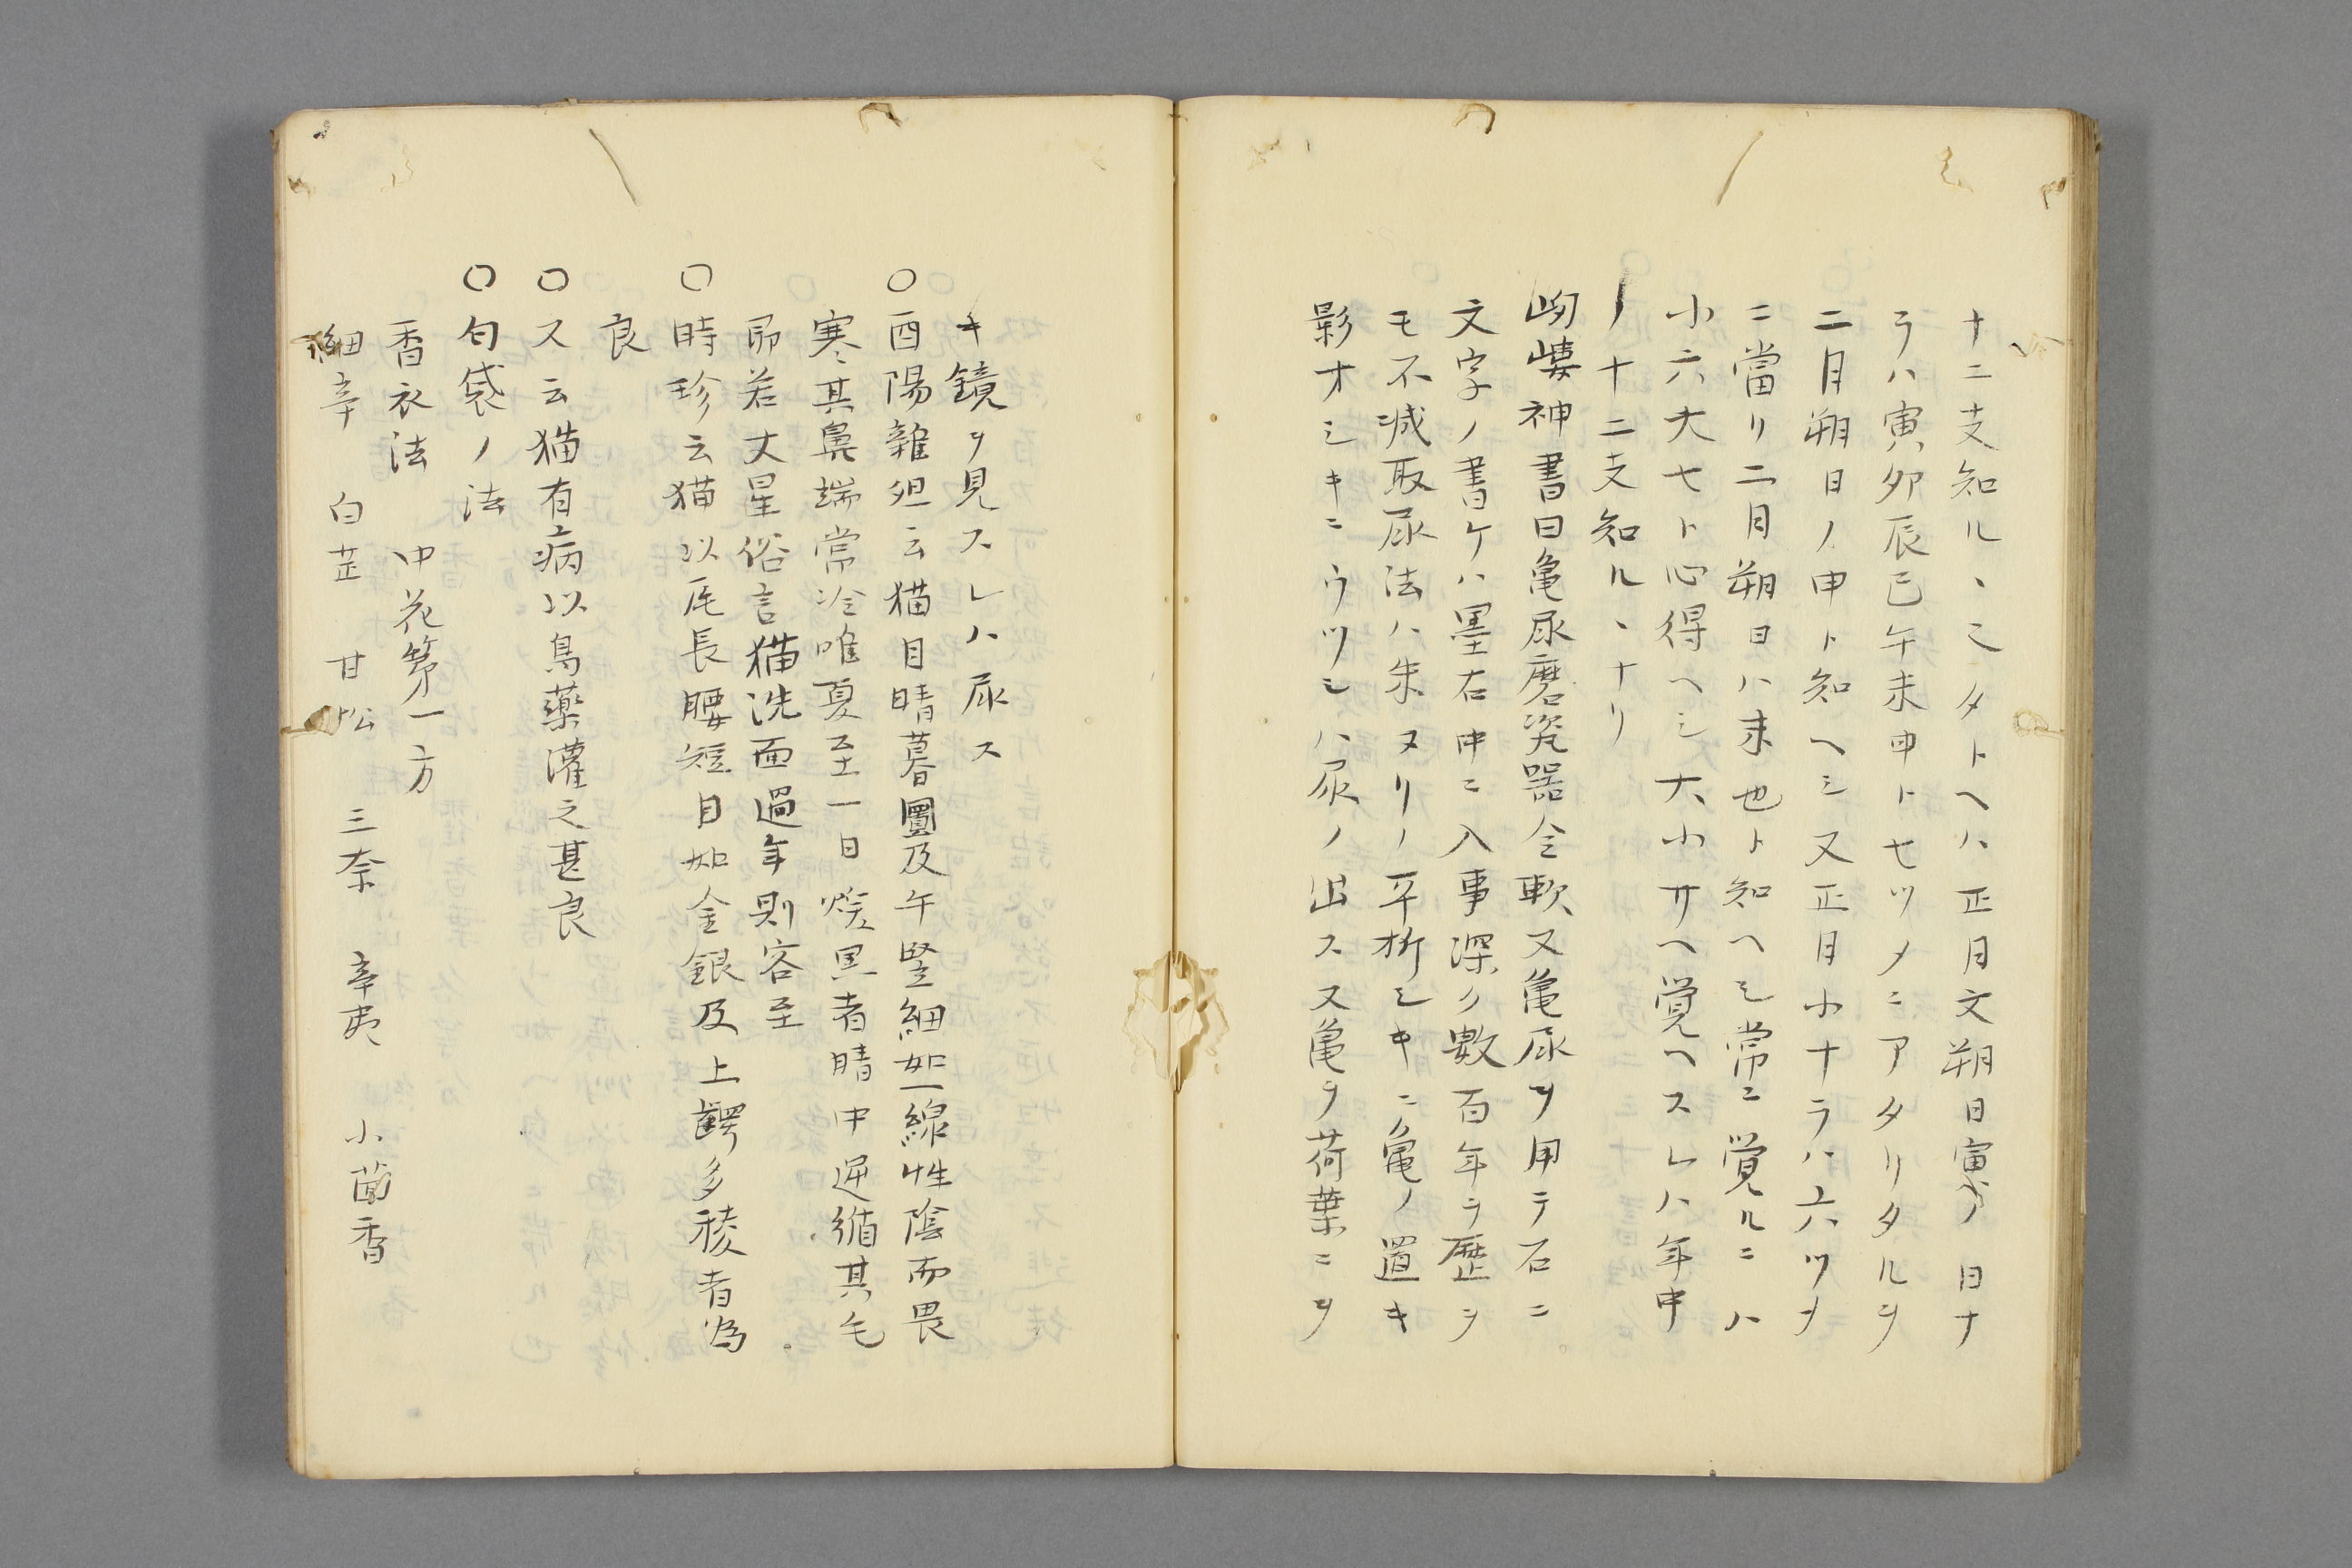 十二支知ルヽ㠯タトヘハ正月文朔日寅ノ日ナ
ラハ寅卯辰巳午未申ト七ツメニアタリタルヲ
二月朔日ノ申ト知ヘシ又正月小ナラハ六ツメ
ニ當リ二月朔日ハ未也ト知ヘシ常ニ覚ルニハ
小六大七ト心得ヘシ大小サヘ覚ヘスレハ年中
ノ十二支知ルヽナリ
岣嶁神書曰亀尿磨瓷器令軟又亀尿ヲ用テ石ニ
文字ノ書ケハ墨石中ニ入事深ク數百年ヲ歴ヲ
モ不減取尿法ハ朱ヌリノ平折シキニ亀ノ置キ
影オシキニウツシハ尿ノ出ス又亀ヲ荷葉ニヲ
キ鏡ヲ見スレハ尿ス
〇酉陽雑俎云猫目晴暮圓及午竪細如一線性陰而畏
寒其鼻端常冷唯夏至一日煖黒者暗中逆循其毛
即若火星俗言猫洗面過年則客至
〇時珍云猫以尾長腰短目如金銀及上齶多稜者為
良
〇又云猫有病以烏藥灌之甚良
〇匂袋ノ法
香衣法　中花第一方
細辛　白芷　甘松　三奈　辛夷　小茴香